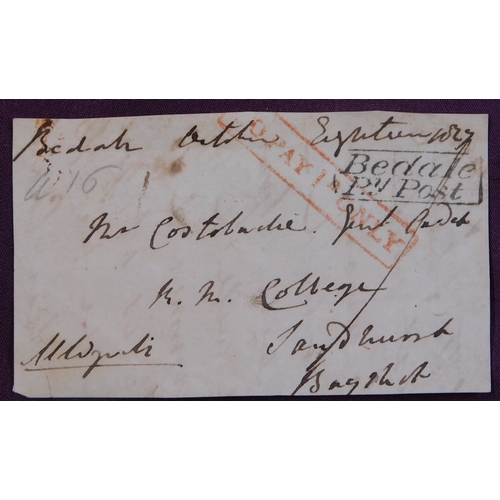 Bedale October Eighteen 1827
TO PAY 1D ONLY
Bedale
Py Post
a 16
Mr Costobadie. Gent Cadet
R. M. College
Sandhurst
Bagshot